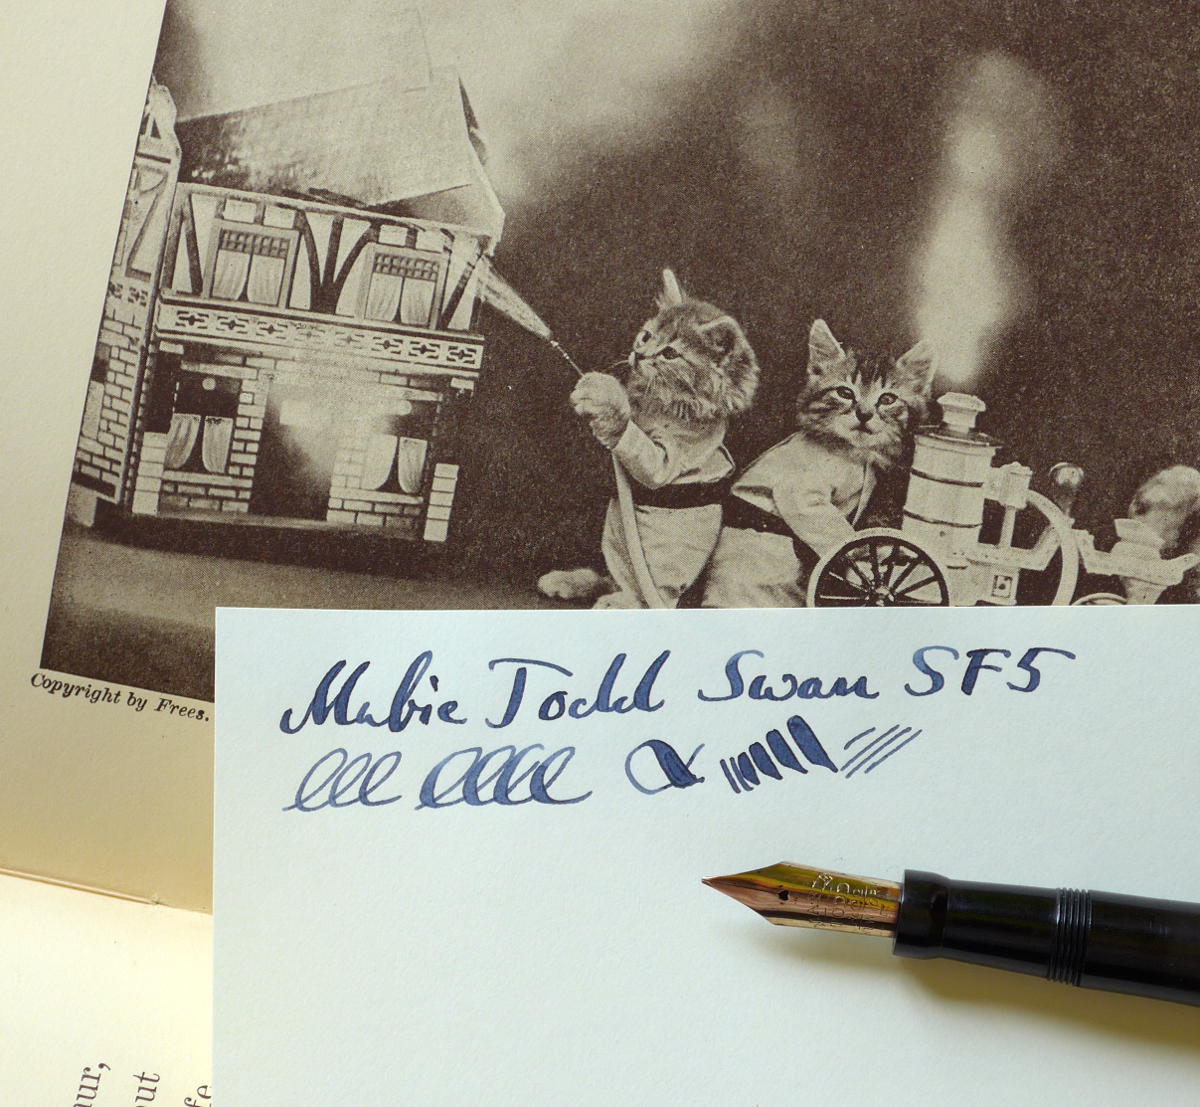 Copyright by Frees.
Mabie Todd Swan SF5